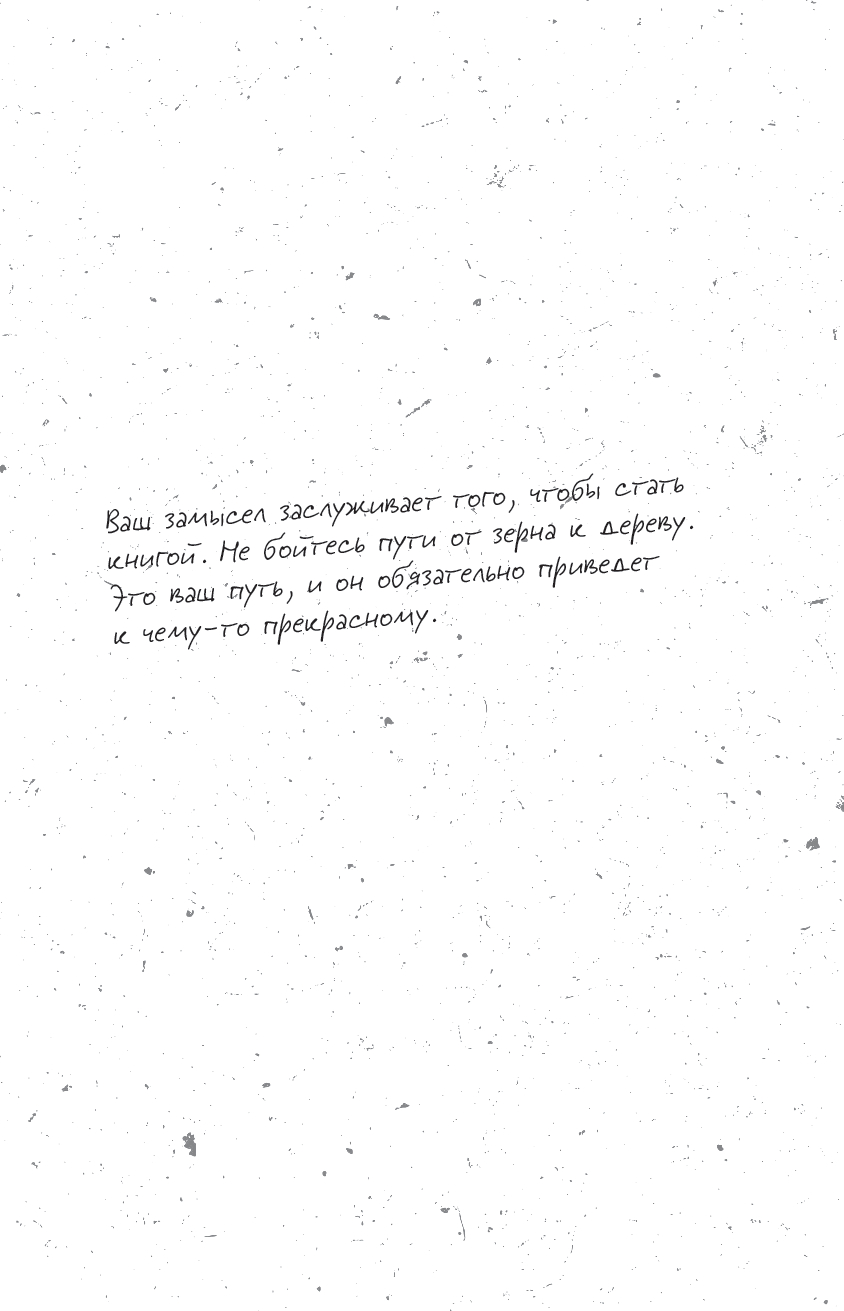 Ваш замысел заслуживает того, чтобы стать
книгой. Не бойтесь пути от зерна к дереву.
Это ваш путь, и он обязательно приведет
к чему-то прекрасному.